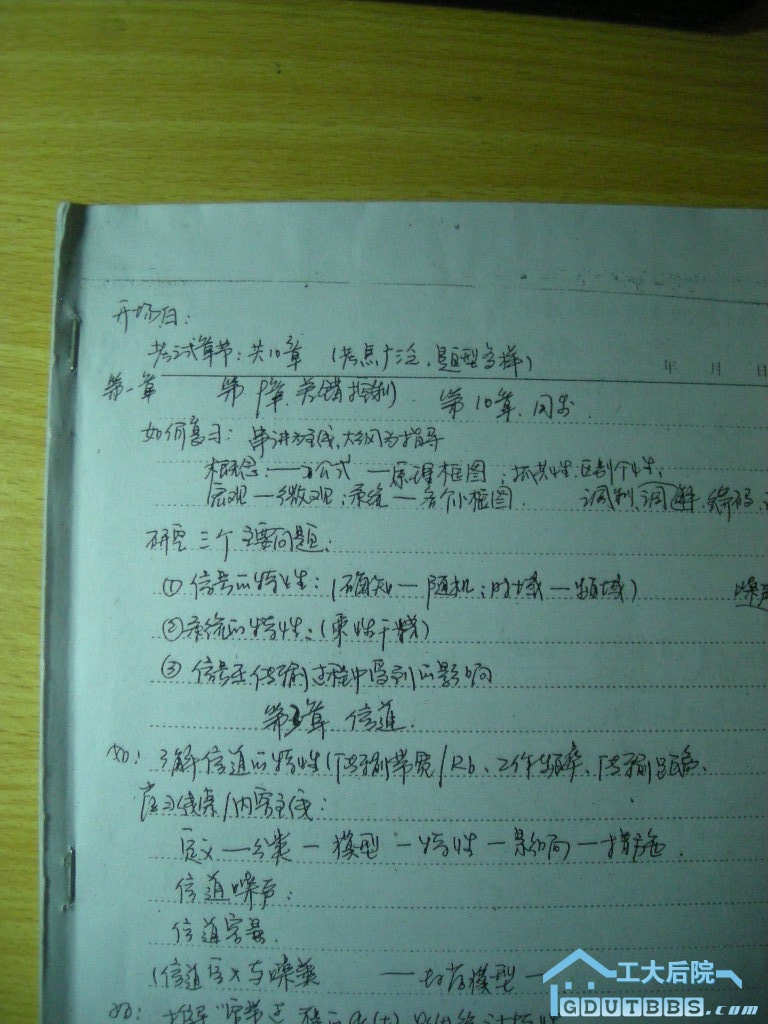 开场白:
考试章节:共10章 (考点广泛,题型多样)
年 月 日
第一章 第9章,差错控制 第10章,同步.
如何复习: 串讲为主线,大纲为指导
概念——公式—原理框图;抓共性,区别个性;
宏观—微观;系统—各个小框图. 调制、调解、编码、
研究三个主要问题:
①信号的特性:(确知—随机;时域—频域) 噪声
②系统的特性:(乘性干扰)
③信号在传输过程中受到的影响
第3章 信道.
如:了解信道的特性(传输带宽/Rb、工作频率、传输距离、
复习线索/内容主线:
定义—分类—模型—特性—影响—措施.
信道噪声:
信道容量.
(信道定义与
工大后院
GDUTBBS.com